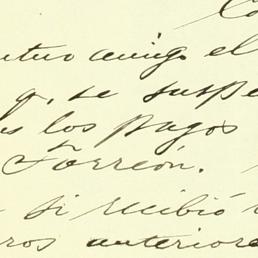 amigo el
q. se suspe
los pagos
Torreón.
si recibió
anteriore